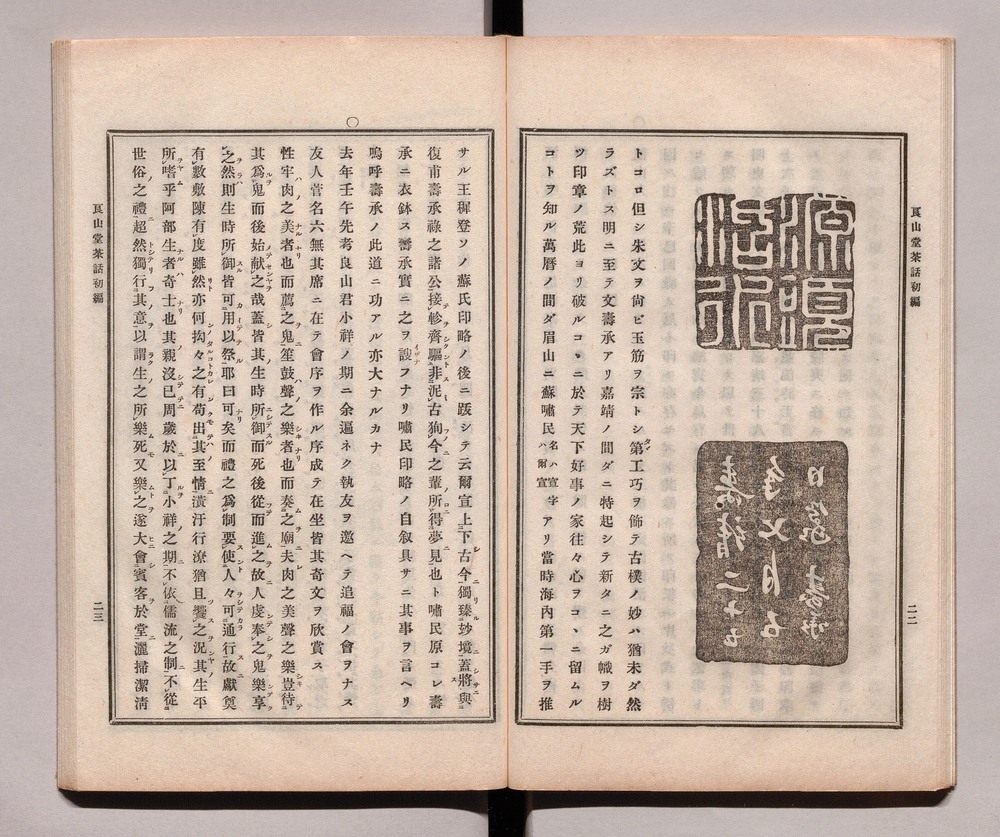 艮山堂茶話初編
二二
トコロ但シ朱文ヲ尙ビ玉筋ヲ宗トシ第工巧ヲ飾テ古樸ノ妙ハ猶未ダ然
ラズトス明ニ至テ文壽承アリ嘉靖ノ間ダニ特起シテ新タニ之ガ幟ヲ樹
ツ印章ノ荒此ヨリ破ルコヽニ於テ天下好事ノ家往々心ヲコヽニ留ムル
コトヲ知ル萬曆ノ間ダ眉山ニ蘇嘯民名ハ宣字ハ爾宣アリ當時海內第一手ヲ推
サル王穉登ソノ蘇氏印略ノ後ニ跋シテ云爾宣上下古今獨臻玅境蓋將與
復甫壽承祿之諸公接軫齊驅非泥古狥今之輩所得夢見也ト嘯民原コレ壽
承ニ衣鉢ス壽承實ニ之ヲ誘フナリ嘯民印略ノ自叙具サニ其事ヲ言ヘリ
嗚呼壽承ノ此道ニ功アル亦大ナルカナ
○
去年壬午先考良山君小祥ノ期ニ余遍ネク執友ヲ邀ヘテ追福ノ會ヲナス
友人菅名六無其席ニ在テ會序ヲ作ル序成テ在坐皆其奇文ヲ欣賞ス
性牢肉之美者也而薦之鬼笙鼓聲之樂者也而奏之廟夫肉之美聲之樂豈待
其爲鬼而後始献之哉蓋皆其生時所御而死後從而進之故人虔奉之鬼樂享
之然則生時所御皆可用以祭耶曰可矣而禮之爲制要使人々可通行故獻奠
有數敷陳有度雖然亦何拘々之有苟出其至情潢汙行潦猶且饗之況其生平
所嗜乎阿部生者奇士也其親沒已周歲於以丁小祥之期不依儒流之制不從
世俗之禮超然獨行其意以謂生之所樂死又樂之遂大會賓客於堂灑掃潔淸
艮山堂茶話初編
二三